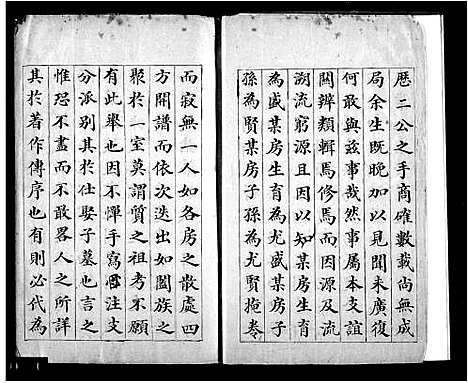 歴二公之手商確數載尚無成
局余生既晚加以見聞未廣復
何敢與茲事哉然事屬本支誼
關辨類輯焉修焉而因源及流
溯流窮源且因以知某房生育
為盛某房生育為尤盛某房子
孫為賢某房子孫為尤賢掩卷
而寂無一人如各房之散處四
方開譜而依次迭出如闔族之
聚於一室莫謂質之祖考不願
有此舉也因不憚手寫心注支
分派別其於仕娶子墓也言之
惟恐不盡而不敢畧人之所詳
其於著作傳序也有則必代為